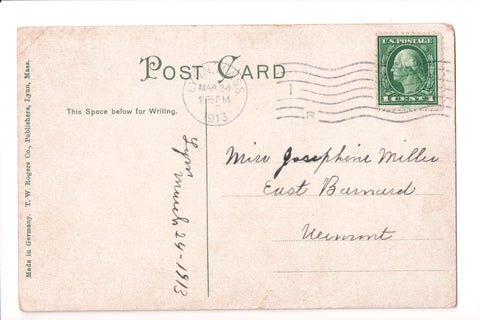 POST CARD
This Space below for Writing.
Made in Germany. T. W. Rogers Co., Publishers, Lynn, Mass.
LYNN, MASS
MAR 24
PM
1913
I
R
U.S. POSTAGE
1 CENT 1
Lynn
March 24-1913
Miss Josephine Miller
East Barnard
Vermont